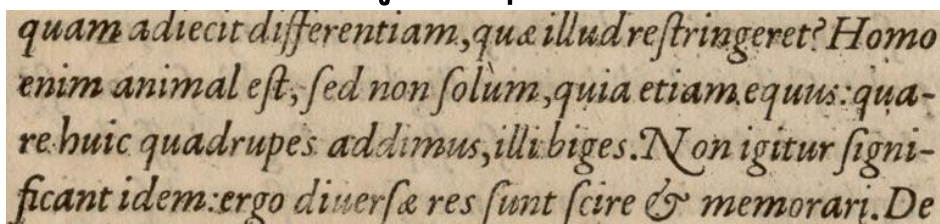 quam adiecit differentiam, quæ illud reſtringeret? Homo
enim animal eſt, ſed non ſolùm, quia etiam equus: qua-
re huic quadrupes addimus, illi biges. Non igitur ſigni-
ficant idem: ergo diuerſæ res ſunt ſcire & memorari. De